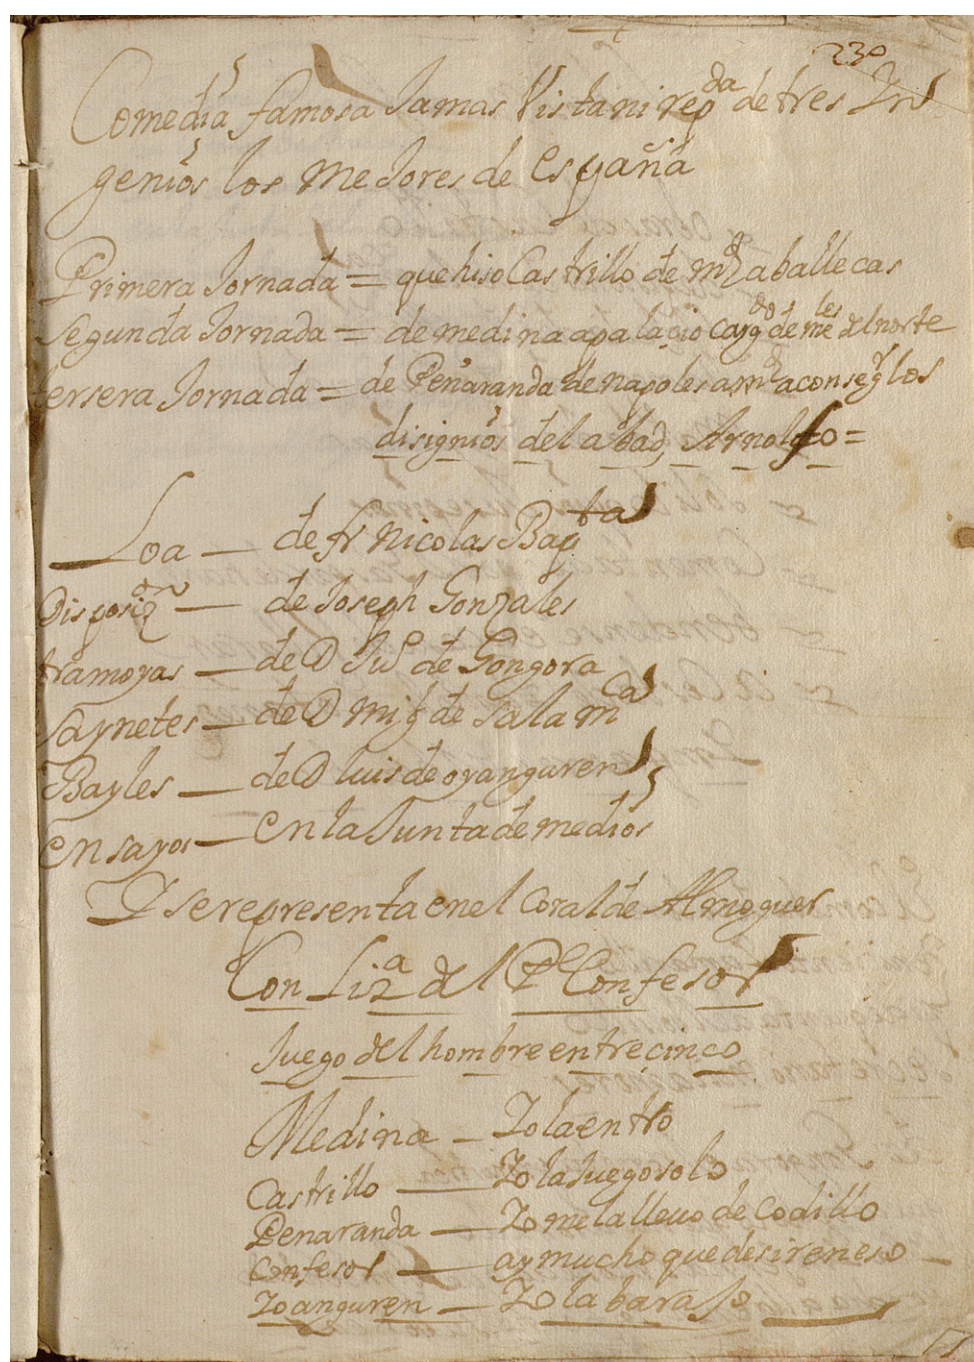 230
Comedia famosa Jamas Vista ni repda de tres In
genios los meJores de España
Primera Jornada = que hiso Castrillo de md a ballecas
segunda Jornada = de medina a palacio cargdo de mles del norte
tersera Jornada = de Peñaranda de napoles a md a conseg los
disignios del abad, Arnolfo =
Loa — de fr nicolas Bapta
Disposizon — de Joseph Gonzales
tramoyas — de D Ju de Gongora
saynetes — de D mig de salamca
Bayles — de D luis de oyanguren
ensayos — en la Junta de medios
Y se representa en el coral de Almoguer
Con Liza del Pe Confesor
Juego del hombre entre cinco
Medina — Yo la entro
Castrillo — Yo la Juego solo
Penaranda — Yo me la lleuo de Codillo
Confesor — ay mucho que desir en eso —
Yoanguren — Yo la baraJo